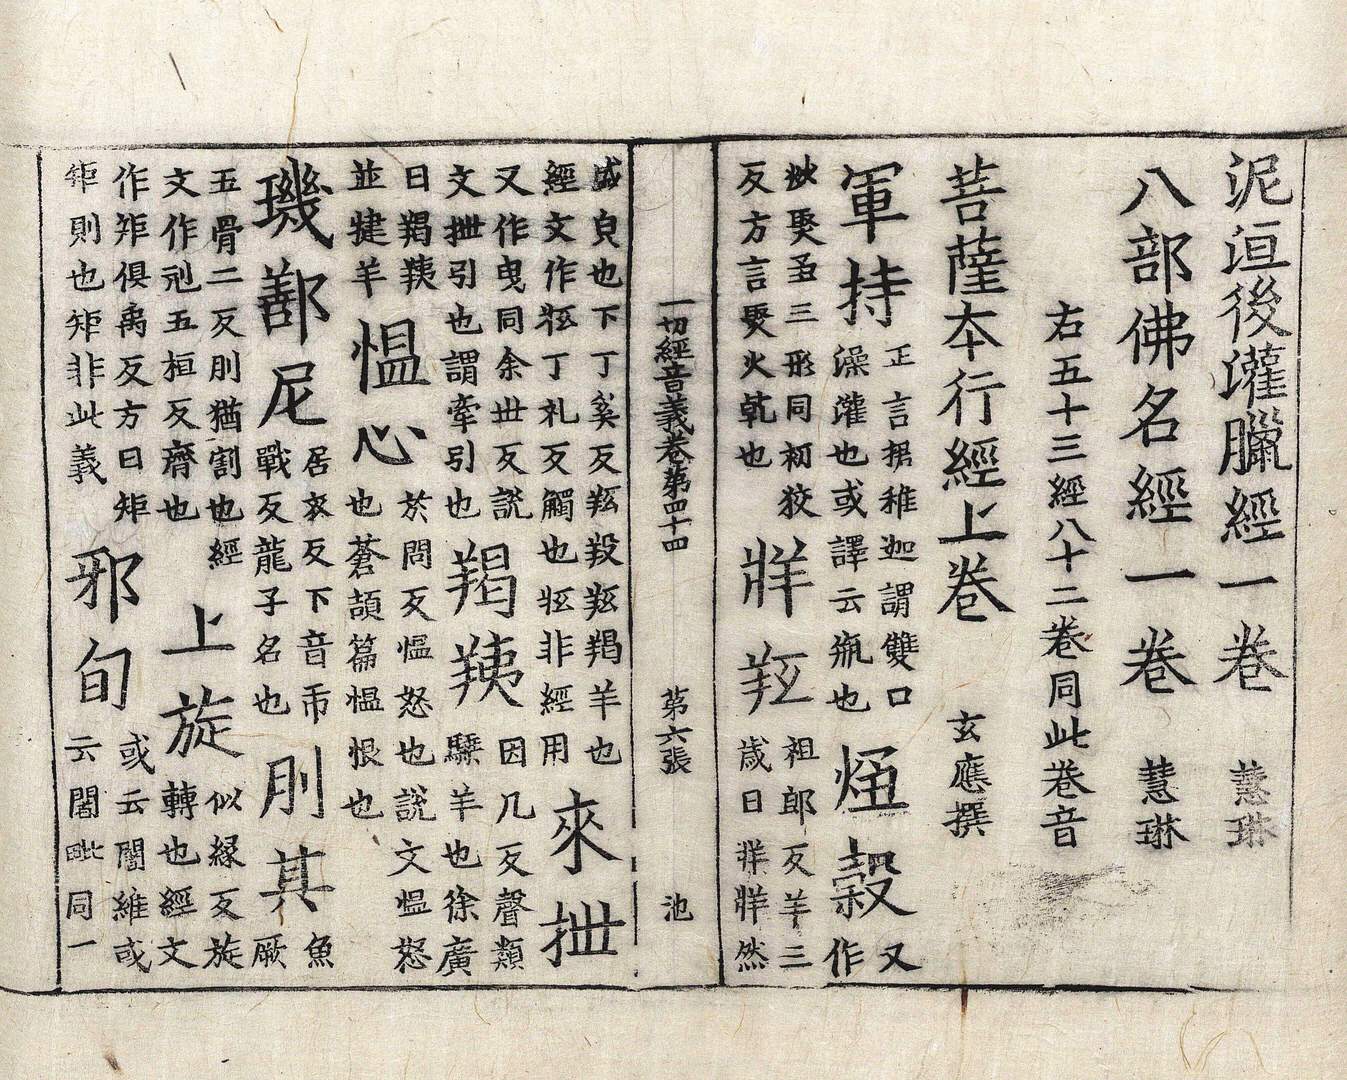 泥洹後灌臘經一卷 慧琳
八部佛名經一卷 慧琳
右五十三經八十二卷同此卷音
菩薩本行經上卷 玄應撰
軍持 正言捃稚迦謂雙口
澡灌也或譯云瓶也 㷶糓 又作
焣聚𤋱三形同初狡
反方言㷶火乹也 牂羝 祖郎反羊三
歲曰牂牂然
盛皃也下丁奚反羝羖羝羯羊也
經文作羝丁礼反觸也羝非經用 來抴
又作曳同余世反説
文抴引也謂牽引也 羯羠 因几反聲類
騬羊也徐廣
曰羯羠
並犍羊 愠心 於問反愠怒也説文愠怒
也蒼頡篇愠恨也
璣鄯尼 居衣反下音帀
戰反龍子名也 刖其 魚厥
五骨二反刖猶割也經
文作刓五桓反齊也 上旋 似縁反旋
轉也經文
作矩俱禹反方曰矩
矩則也矩非此義 邪旬 或云闍維或
云闍毗同一
一切經音義卷第四十四 第六張 池